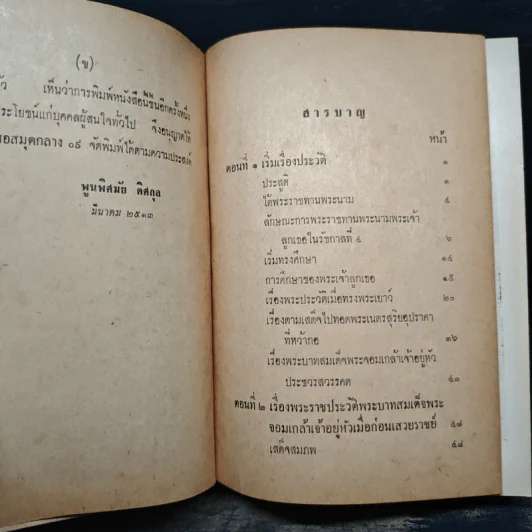 (ข)
เห็นว่าการพิมพ์หนังสือนี้ขึ้นอีกครั้งหนึ่ง
ประโยชน์แก่บุคคลผู้สนใจทั่วไป จึงอนุญาตให้
หอสมุดกลาง ๐๙ จัดพิมพ์ได้ตามความประสงค์
พูนพิศมัย ดิศกุล
มีนาคม ๒๕๑๓
สารบาญ
หน้า
ตอนที่ ๑ เริ่มเรื่องประวัติ ๑
ประสูติ ๑
ได้พระราชทานพระนาม ๔
ลักษณะการพระราชทานพระนามพระเจ้า
ลูกเธอในรัชกาลที่ ๔ ๖
เริ่มทรงศึกษา ๑๔
การศึกษาของพระเจ้าลูกเธอ ๑๕
เรื่องพระประวัติเมื่อทรงพระเยาว์ ๒๐
เรื่องตามเสด็จไปทอดพระเนตรสุริยอุปราคา
ที่หว้ากอ ๓๖
เรื่องพระบาทสมเด็จพระจอมเกล้าเจ้าอยู่หัว
ประชวรสวรรคต ๔๓
ตอนที่ ๒ เรื่องพระราชประวัติพระบาทสมเด็จพระ
จอมเกล้าเจ้าอยู่หัวเมื่อก่อนเสวยราชย์ ๕๘
เสด็จสมภพ ๕๘